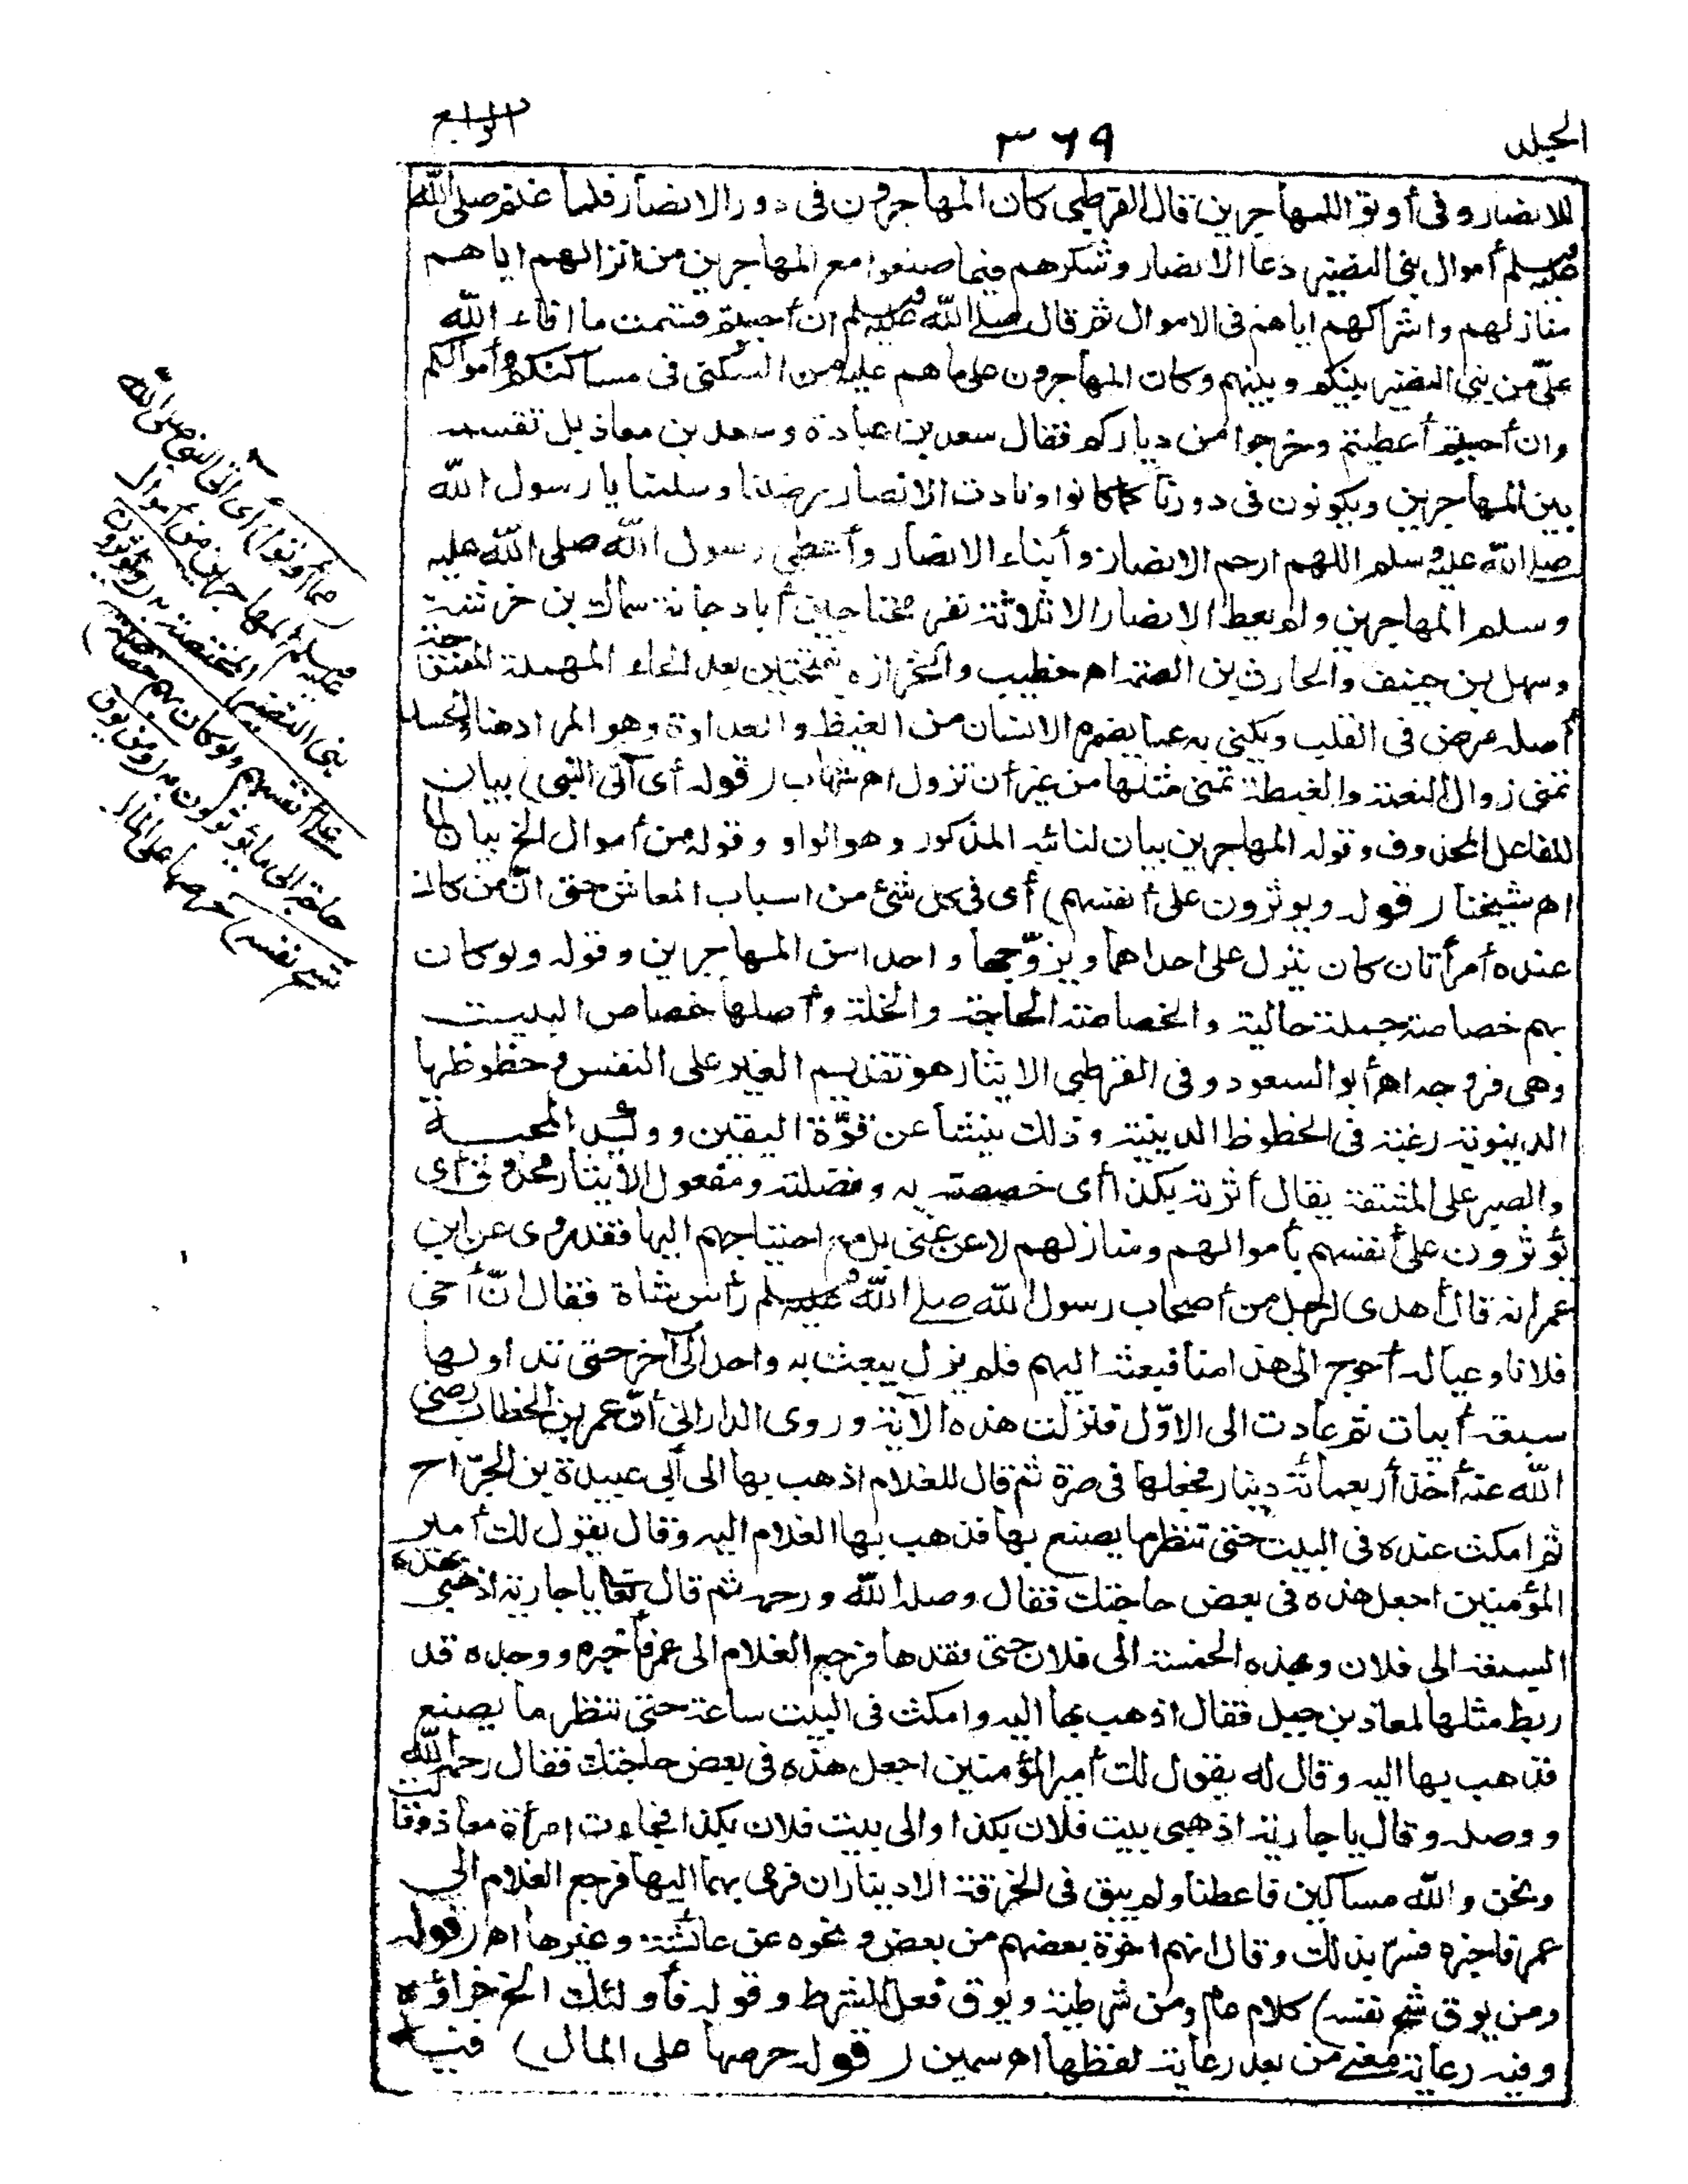 الجلد
٣٦٩
الرابع
للانصار وفى أوتوا للمهاجرين قال القرطبى كان المهاجرون فى دور الانصار فلما غنم صلى الله
عليه وسلم أموال بنى النضير دعا الانصار وشكرهم فيما صنعوا مع المهاجرين من انزالهم اياهم
منازلهم واشراكهم اياهم فى الاموال ثم قال صلى الله عليه وسلم ان أحببتم قسمت ما افاء الله
علىّ من بنى النضير بينكم وبينهم وكان المهاجرون على ما هم عليه من السكنى فى مساكنكم وأموالكم
وان أحببتم أعطيتم وخرجوا من دياركم فقال سعد بن عبادة وسعد بن معاذ بل تقسمه
بين المهاجرين ويكونون فى دورنا كما كانوا ونادت الانصار رضينا وسلمنا يا رسول الله
صلى الله عليه وسلم اللهم ارحم الانصار وأبناء الانصار وأعطى رسول الله صلى الله عليه
وسلم المهاجرين ولم يعط الانصار الا ثلاثة نفر محتاجين أبا دجانة سماك بن خرشة
وسهل بن حنيف والحارث بن الصمة اه خطيب والحزازة بفتحتين بعد الحاء المهملة المفتوحة
أصله مرض فى القلب ويكنى به عما يضمره الانسان من الغيظ والعداوة وهو المراد هنا والحسد
تمنى زوال النعمة والغبطة تمنى مثلها من غير أن تزول اه شهاب (قوله أى آتى النبى) بيان
للفاعل المحذوف وقوله المهاجرين بيان لنائبه المذكور وهو الواو وقوله من أموال الخ بيان لما
اه شيخنا (قوله ويوثرون على أنفسهم) أى فى كل شئ من اسباب المعاش حتى انّ من كان
عنده أمرأتان كان ينزل على احداهما ويزوّجها واحدا من المهاجرين وقوله ولو كان
بهم خصاصة جملة حالية والخصاصة الحاجة والخلة وأصلها خصاص البيت
وهى فروجه اه أبو السعود وفى القرطبى الايثار هو تقديم الغير على النفس وحظوظها
الدينوية رغبة فى الحظوظ الدينية وذلك ينشأ عن قوّة اليقين ووكيد المحبة
والصبر على المشقة يقال أثرته بكذا أى خصصته به وفضلته ومفعول الايثار محذوف أى
يؤثرون على أنفسهم بأموالهم ومنازلهم لا عن غنى بل مع احتياجهم اليها فقد روى عن ابن
عمر انه قال أهدى لرجل من أصحاب رسول الله صلى الله عليه وسلم رأس شاة فقال انّ أخى
فلانا وعياله أحوج الى هذا منا فبعثه اليهم فلم يزل يبعث به واحد الى آخر حتى تداولها
سبعة أبيات ثم عادت الى الاوّل فنزلت هذه الآية وروى الدارانى أنّ عمر بن الخطاب رضى
الله عنه أخذ أربعمائة دينار فجعلها فى صرة ثم قال للغلام اذهب بها الى أبى عبيدة بن الجرّاح
ثم امكث عنده فى البيت حتى تنظر ما يصنع بها فذهب بها الغلام اليه وقال يقول لك أمير
المؤمنين اجعل هذه فى بعض حاجتك فقال وصله الله ورحمه ثم قال تعالى يا جارية اذهبى بهذه
السبعة الى فلان وبهذه الخمسة الى فلان حتى نفدها فرجع الغلام الى عمر فأخبره ووجده قد
ربط مثلها لمعاذ بن جبل فقال اذهب بها اليه وامكث فى البيت ساعة حتى تنظر ما يصنع
فذهب بها اليه وقال له يقول لك أمير المؤمنين اجعل هذه فى بعض حاجتك فقال رحمه الله
ووصله وقال يا جارية اذهبى بيت فلان بكذا والى بيت فلان بكذا فجاءت امرأة معاذ وقالت
ونحن والله مساكين فاعطنا ولم يبق فى الخرقة الا ديناران فرمى بهما اليها فرجع الغلام الى
عمر فاخبره فسرّ بذلك وقال انهم اخوة بعضهم من بعض ونحوه عن عائشة وغيرها اه (قوله
ومن يوق شح نفسه) كلام عام ومن شرطية ويوق فعل الشرط وقوله فأولئك الخ جزاؤه
وفيه رعاية معنى من بعد رعاية لفظها اه سمين (قوله حرصها على المال) فيه
مما أوتوا) أى آتى النبى صلى الله
عليه وسلم المهاجرين من أموال
بنى النضير المختصة به (ويؤثرون
على أنفسهم ولو كان بهم خصاصة)
حاجة الى ما يؤثرون به (ومن يوق
شح نفسه) حرصها على المال